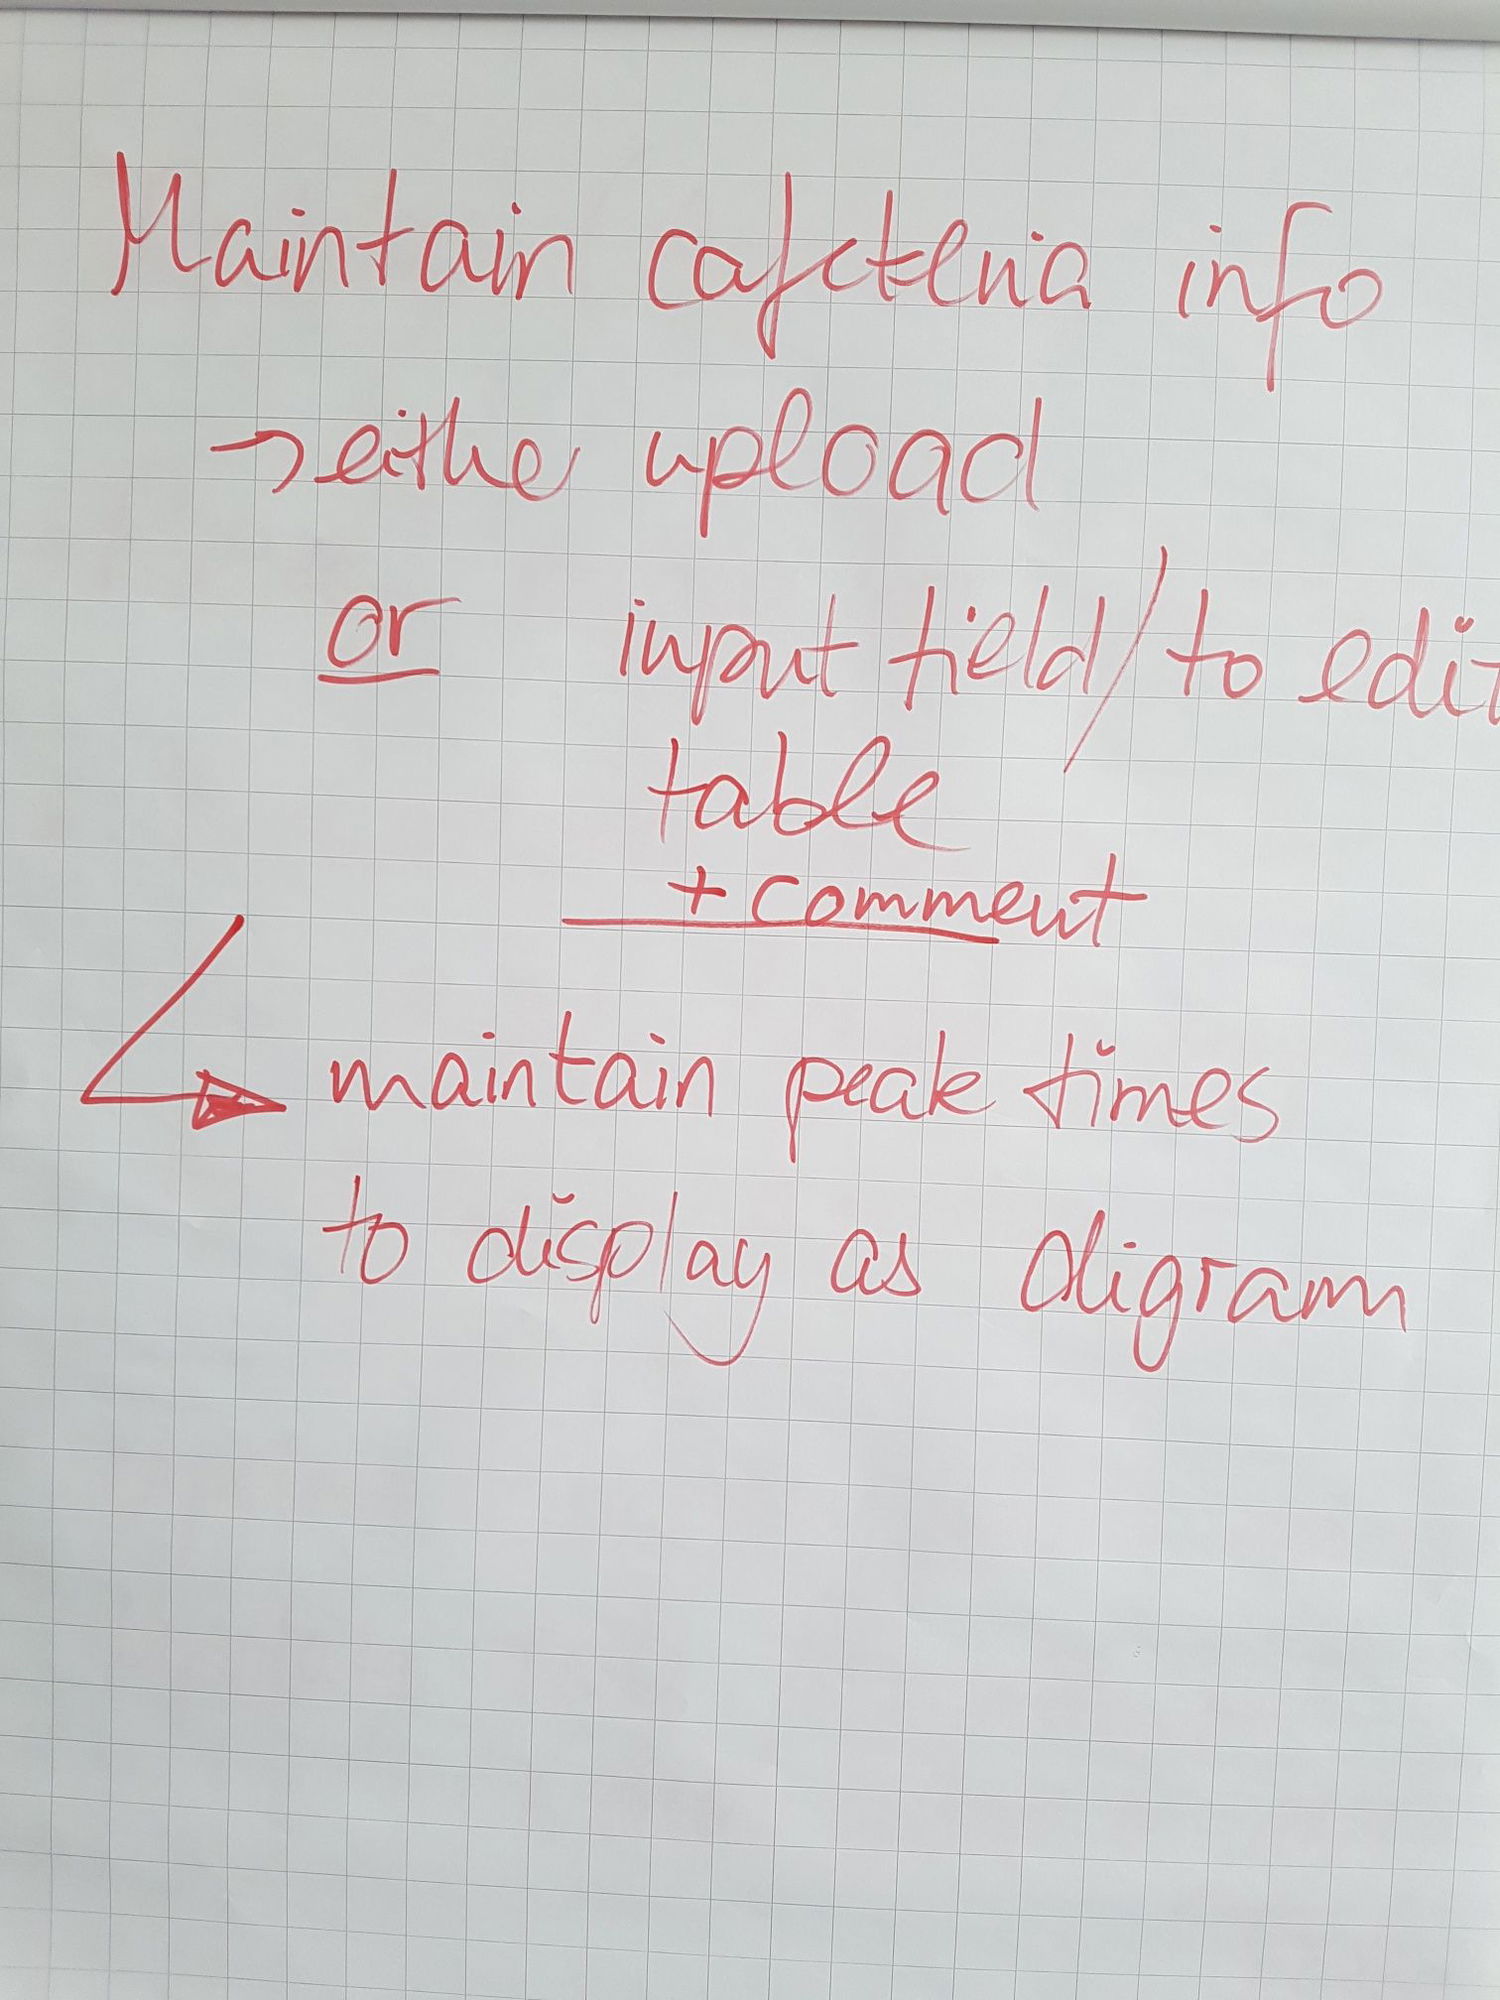 Maintain cafeteria info
→ eithe upload
or input field / to edit
table
+ comment
maintain peak times
to display as digram